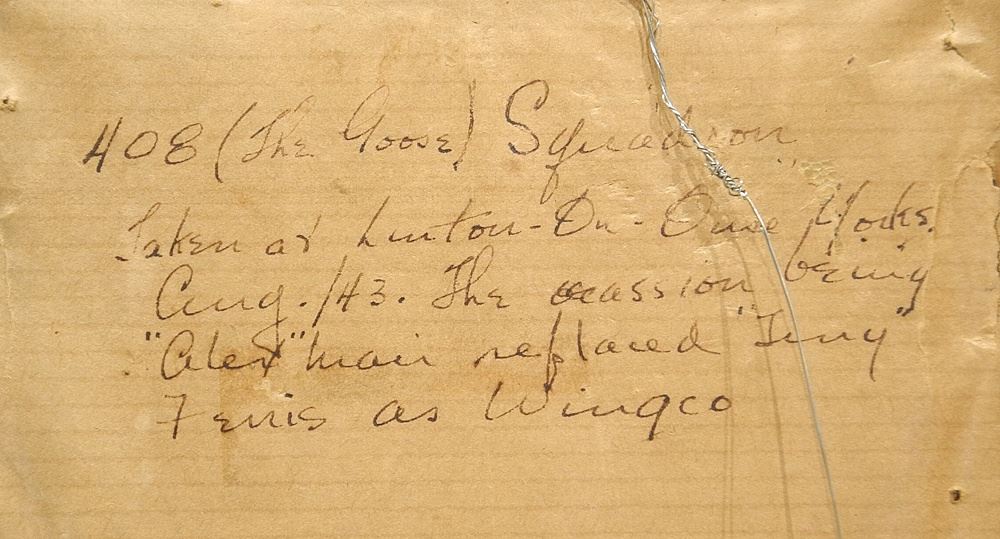 408 (The Goose) Squadron
Taken at Linton-On-Ouse Yorks.
Aug. /43. The ocassion being
"Alex" Mair replaced "Terry"
Ferris as Wingco